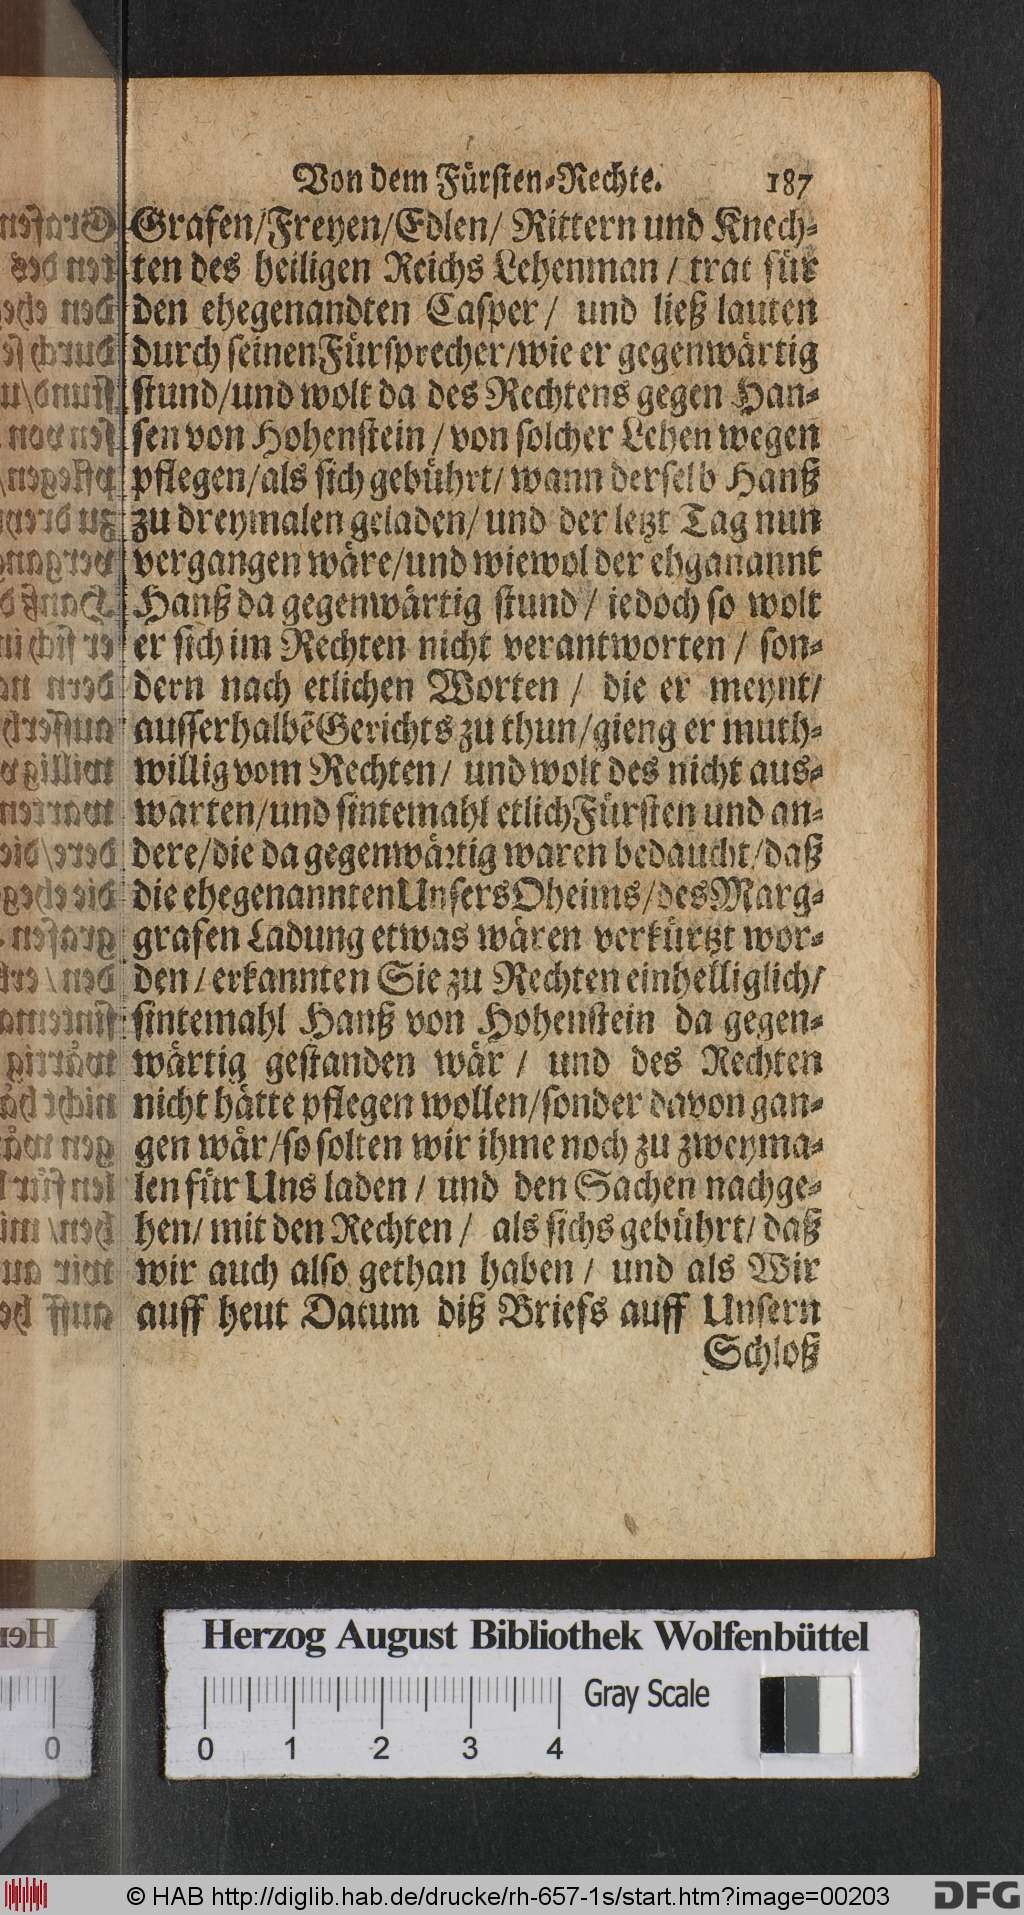 Von dem Fürsten-Rechte. 187
Grafen/Freyen/Edlen/ Rittern und Knech-
ten des heiligen Reichs Lehenman / trat für
den ehegenandten Casper / und ließ lauten
durch seinen Fürsprecher/wie er gegenwärtig
stund/und wolt da des Rechtens gegen Han-
sen von Hohenstein / von solcher Lehen wegen
pflegen/als sich gebührt/ wann derselb Hanß
zu dreymalen geladen/ und der letzt Tag nun
vergangen wäre/und wiewol der ehganannt
Hanß da gegenwärtig stund / iedoch so wolt
er sich im Rechten nicht verantworten / son-
dern nach etlichen Worten / die er meynt/
ausserhalbẽ Gerichts zu thun/gieng er muth-
willig vom Rechten/ und wolt des nicht aus-
warten/und sintemahl etlich Fürsten und an-
dere/die da gegenwärtig waren bedaucht/daß
die ehegenannten Unsers Oheims/des Marg-
grafen Ladung etwas wären verkürtzt wor-
den / erkannten Sie zu Rechten einhelliglich/
sintemahl Hanß von Hohenstein da gegen-
wärtig gestanden wär / und des Rechten
nicht hätte pflegen wollen/sonder davon gan-
gen wär/so solten wir ihme noch zu zweyma-
len für Uns laden / und den Sachen nachge-
hen/ mit den Rechten / als sichs gebührt/ daß
wir auch also gethan haben / und als Wir
auff heut Datum diß Briefs auff Unsern
Schloß
Herzog August Bibliothek Wolfenbüttel
0 1 2 3 4 Gray Scale
© HAB http://diglib.hab.de/drucke/rh-657-1s/start.htm?image=00203
DFG